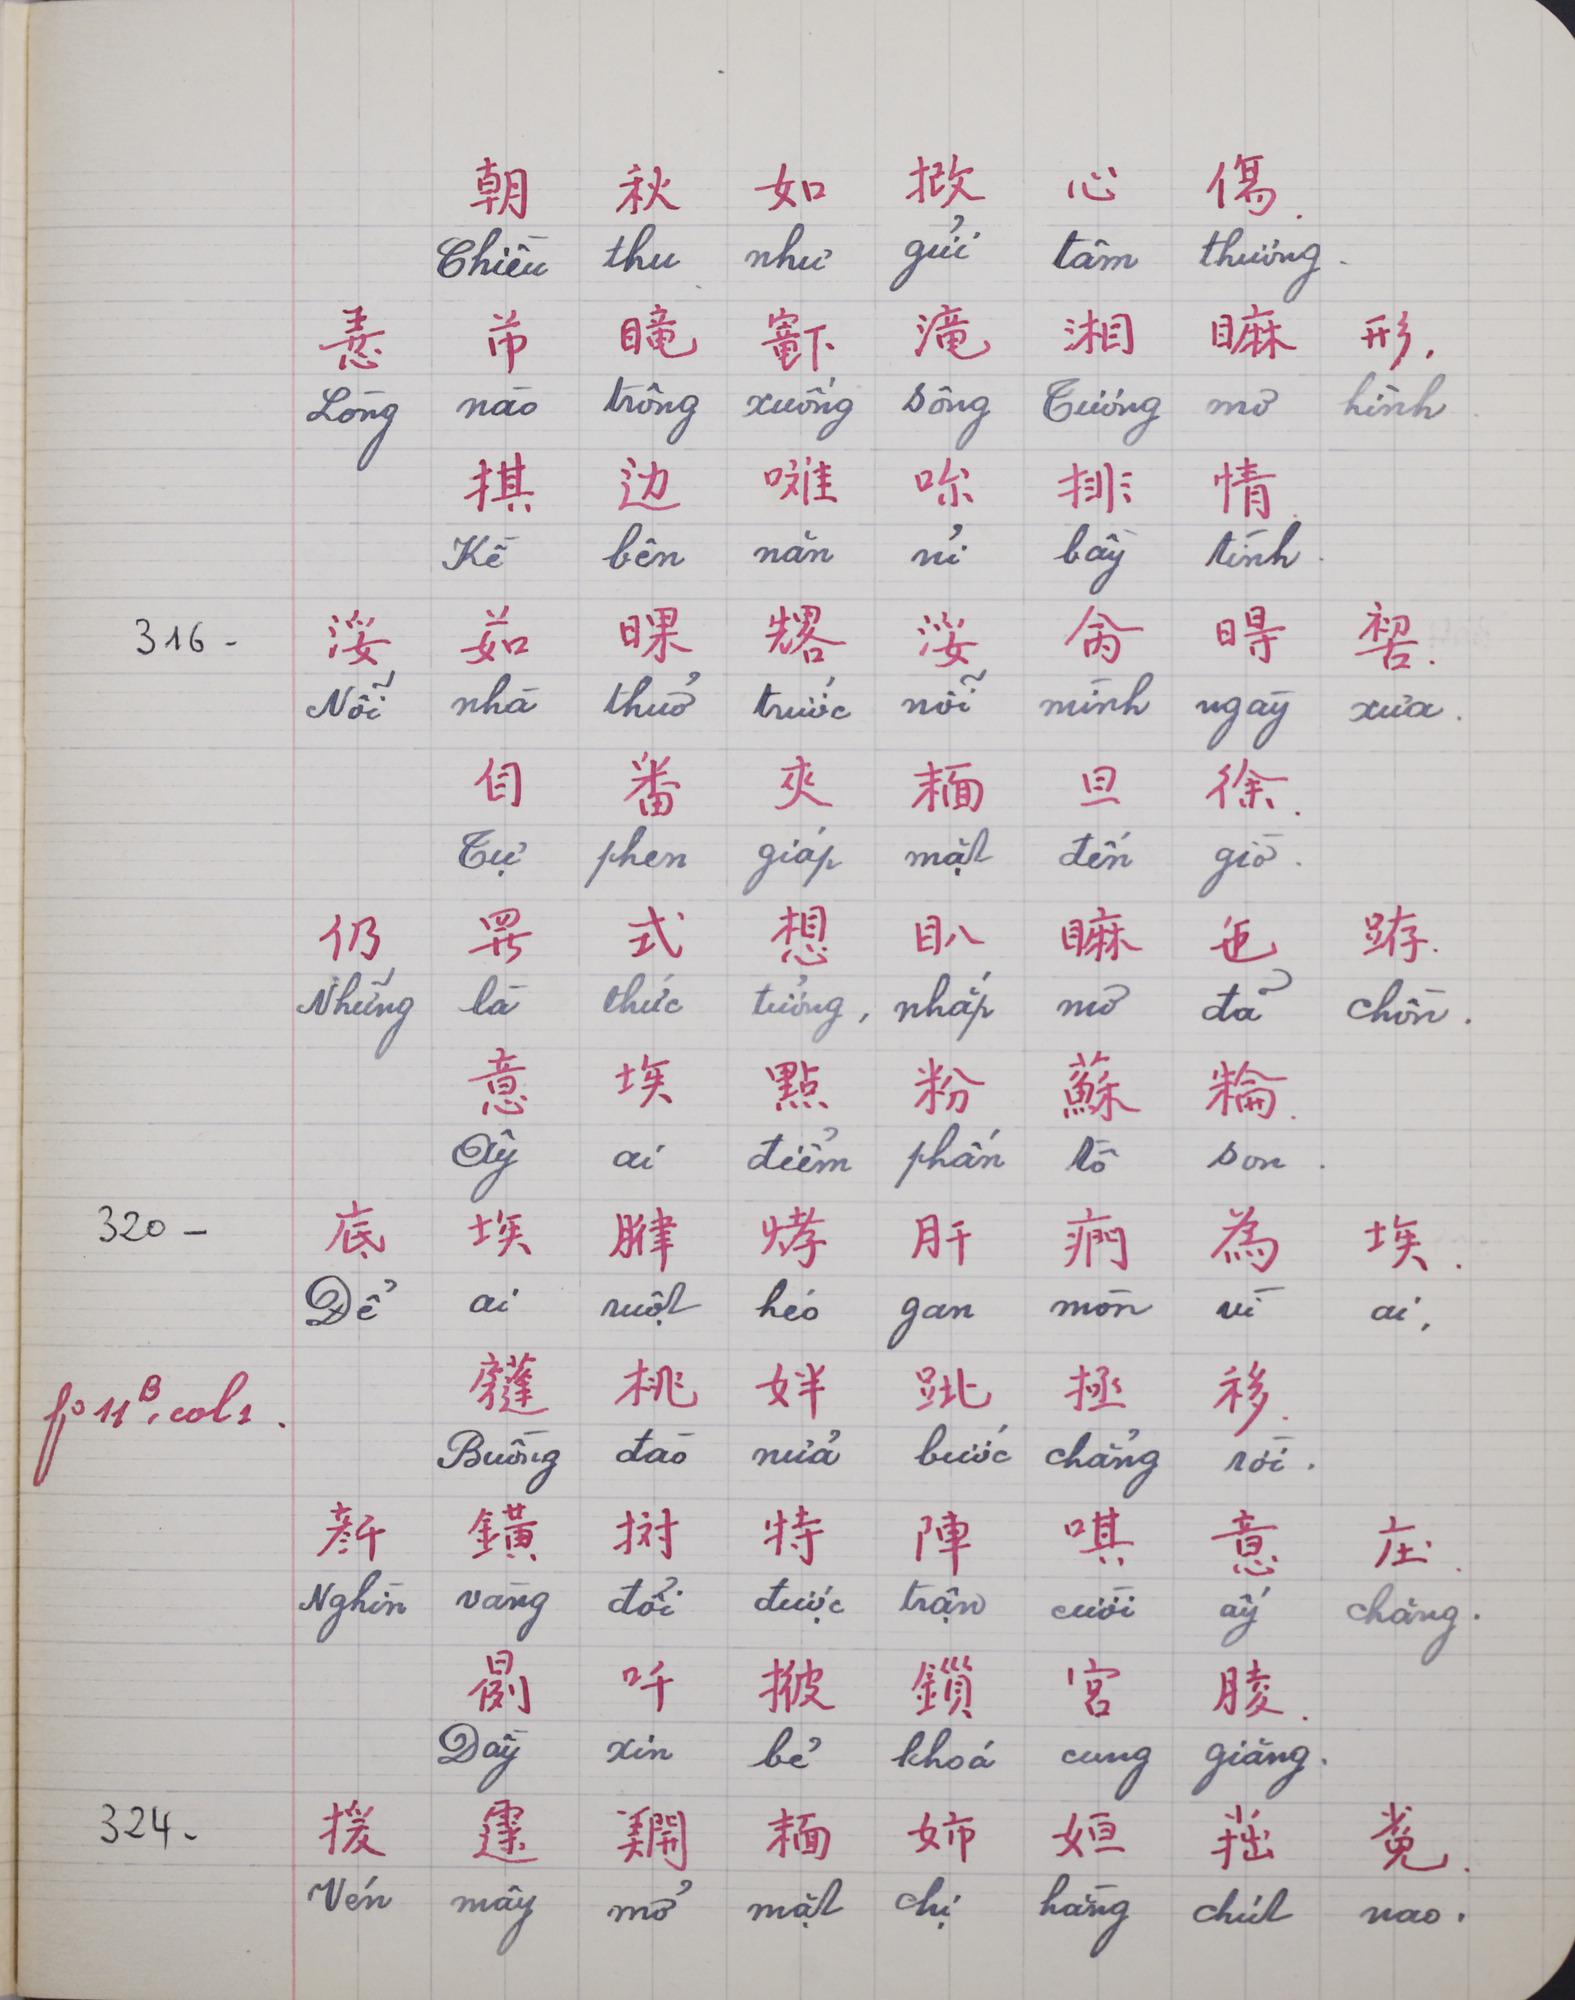 朝 秋 如 𢭮 心 傷.
Chiều thu như gửi tâm thương.
芇 滝 湘 𥊚 形.
Lòng nào trông xuống sông Tương mơ hình
掑 边 𠹌 𠰚 排 情.
Kề bên nằn nỉ bầy tình.
316- 浽 茹 𣇜 𠓀 浽 𨉟 𣈗 𠸗.
Nỗi nhà thuở trước nỗi mình ngày xưa.
自 番 夾 𩈘 旦 徐.
Tự phen giáp mặt đến giờ.
仍 罗 式 想 𥄬 𥊚 㐌
Những là thức tưởng, nhấp mơ đã chồn.
意 埃 點 粉 蘇
Ấy ai điểm phấn tô son.
320 - 底 埃 𦛌 烤 肝 𤷱 為 埃.
Để ai ruột héo gan mòn vì ai,
桃 姅 𨀈 拯 移.
f° 11B, col 2.
Buồng đào nửa bước chẳng rời.
𠦳 鐄 𢷮 特 陣 唭 意 庄.
Nghìn vàng đổi được trận cười ấy chăng.
吀 𢯏 鎖 宮 𦝄.
Dẩy xin bẻ khoá cung giăng.
324- 援 𩄲 𨷑 𩈘 姉 姮 𡭧
Vén mây mở mặt chị hằng chút nao.